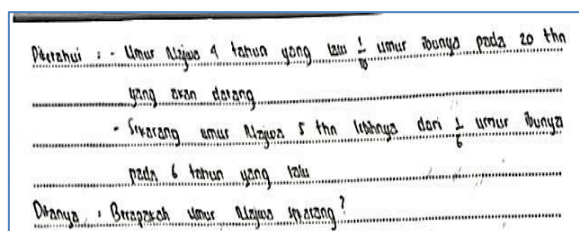 Diketahui : - Umur Najwa 4 tahun yang lalu 1/10 umur ibunya pada 20 thn
yang akan datang
- Sekarang umur Najwa 5 thn lebihnya dari 1/6 umur ibunya
pada 6 tahun yang lalu
Ditanya : Berapakah umur Najwa sekarang?